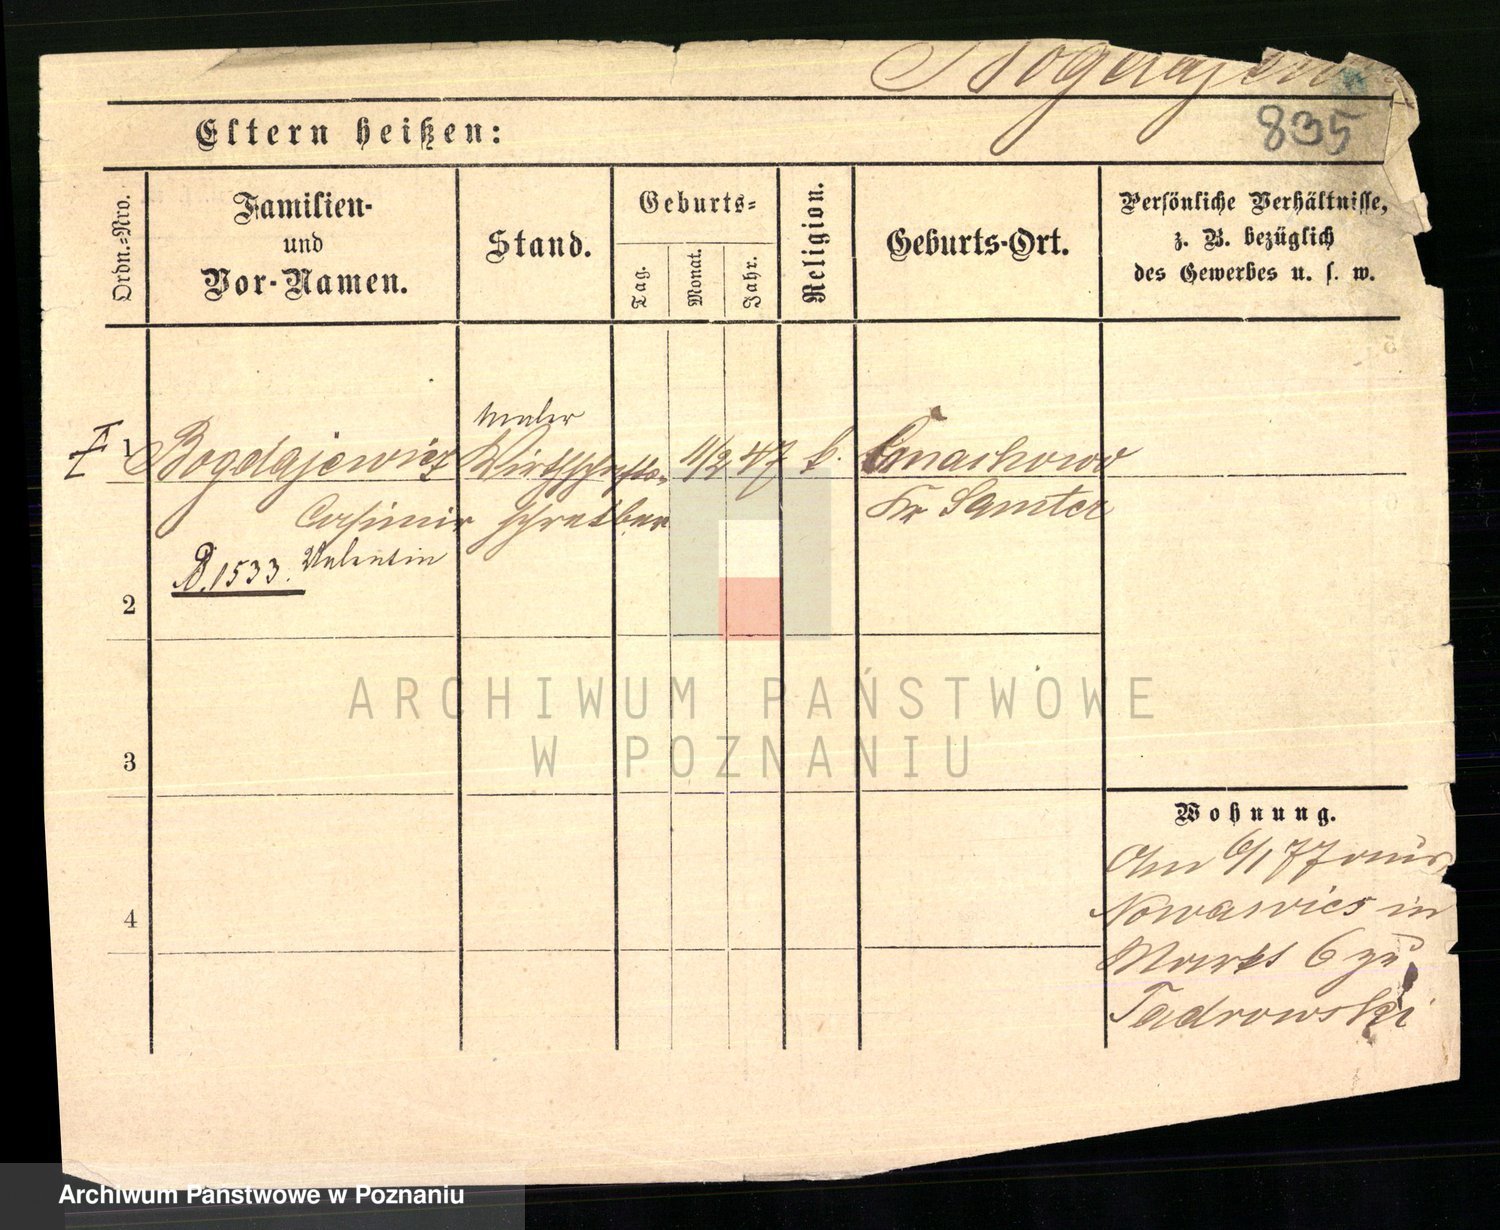 Bogdajewicz
835
Eltern heißen:
Ordn.-Nro.
Familien-
und
Vor-Namen.
Stand.
Geburts-
Tag.
Monat.
Jahr.
Religion.
Geburts-Ort.
Persönliche Verhältnisse,
z. B. bezüglich
des Gewerbes u. s. w.
Maler
1 Bogdajewicz Wirthschafts- 11/2 47 k. Cmachowo
Casimir schreiber Kr Samter
Valentin
B. 1533.
2
ARCHIWUM PAŃSTWOWE
W POZNANIU
3
Wohnung.
Am 6/1 77 aus
Nowawies in
4
Markt 6 zu
Tadrowski
Archiwum Państwowe w Poznaniu